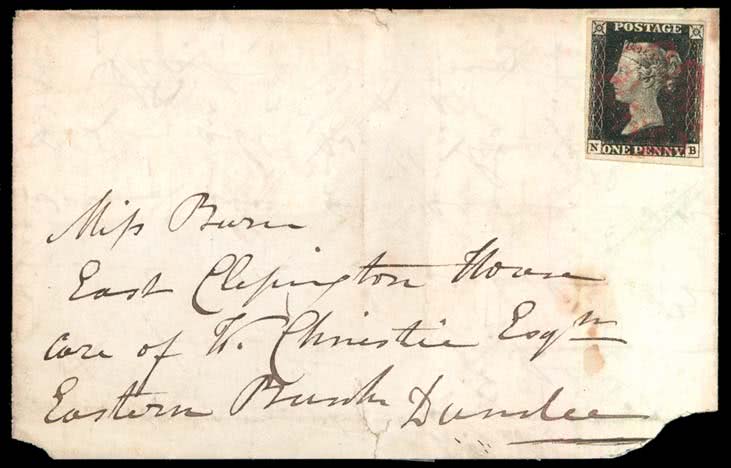 POSTAGE
N ONE PENNY B
Miss Burn
East Clepington House
care of W. Christie Esqre
Eastern Bank Dundee